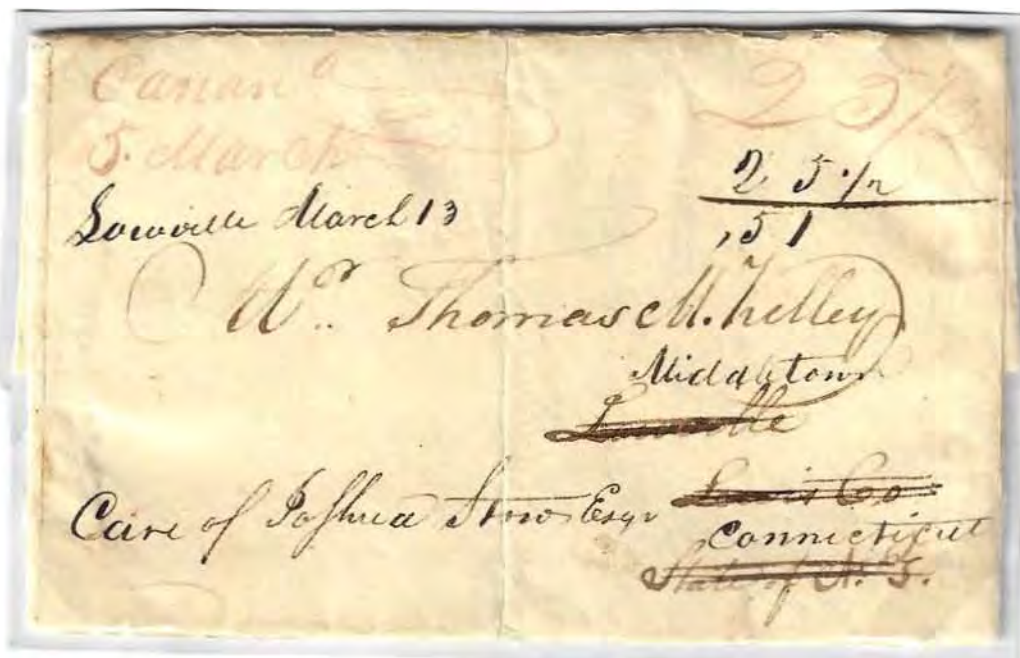 Canan.ᵃ 25 1/2
5. March
25 1/2
Lowville March 13 ,51
Mr. Thomas M. Kelley
Middletown
Lowville
Lewis Co
Care of Joshua Stow Esqr
Connecticut
State of N. Y.